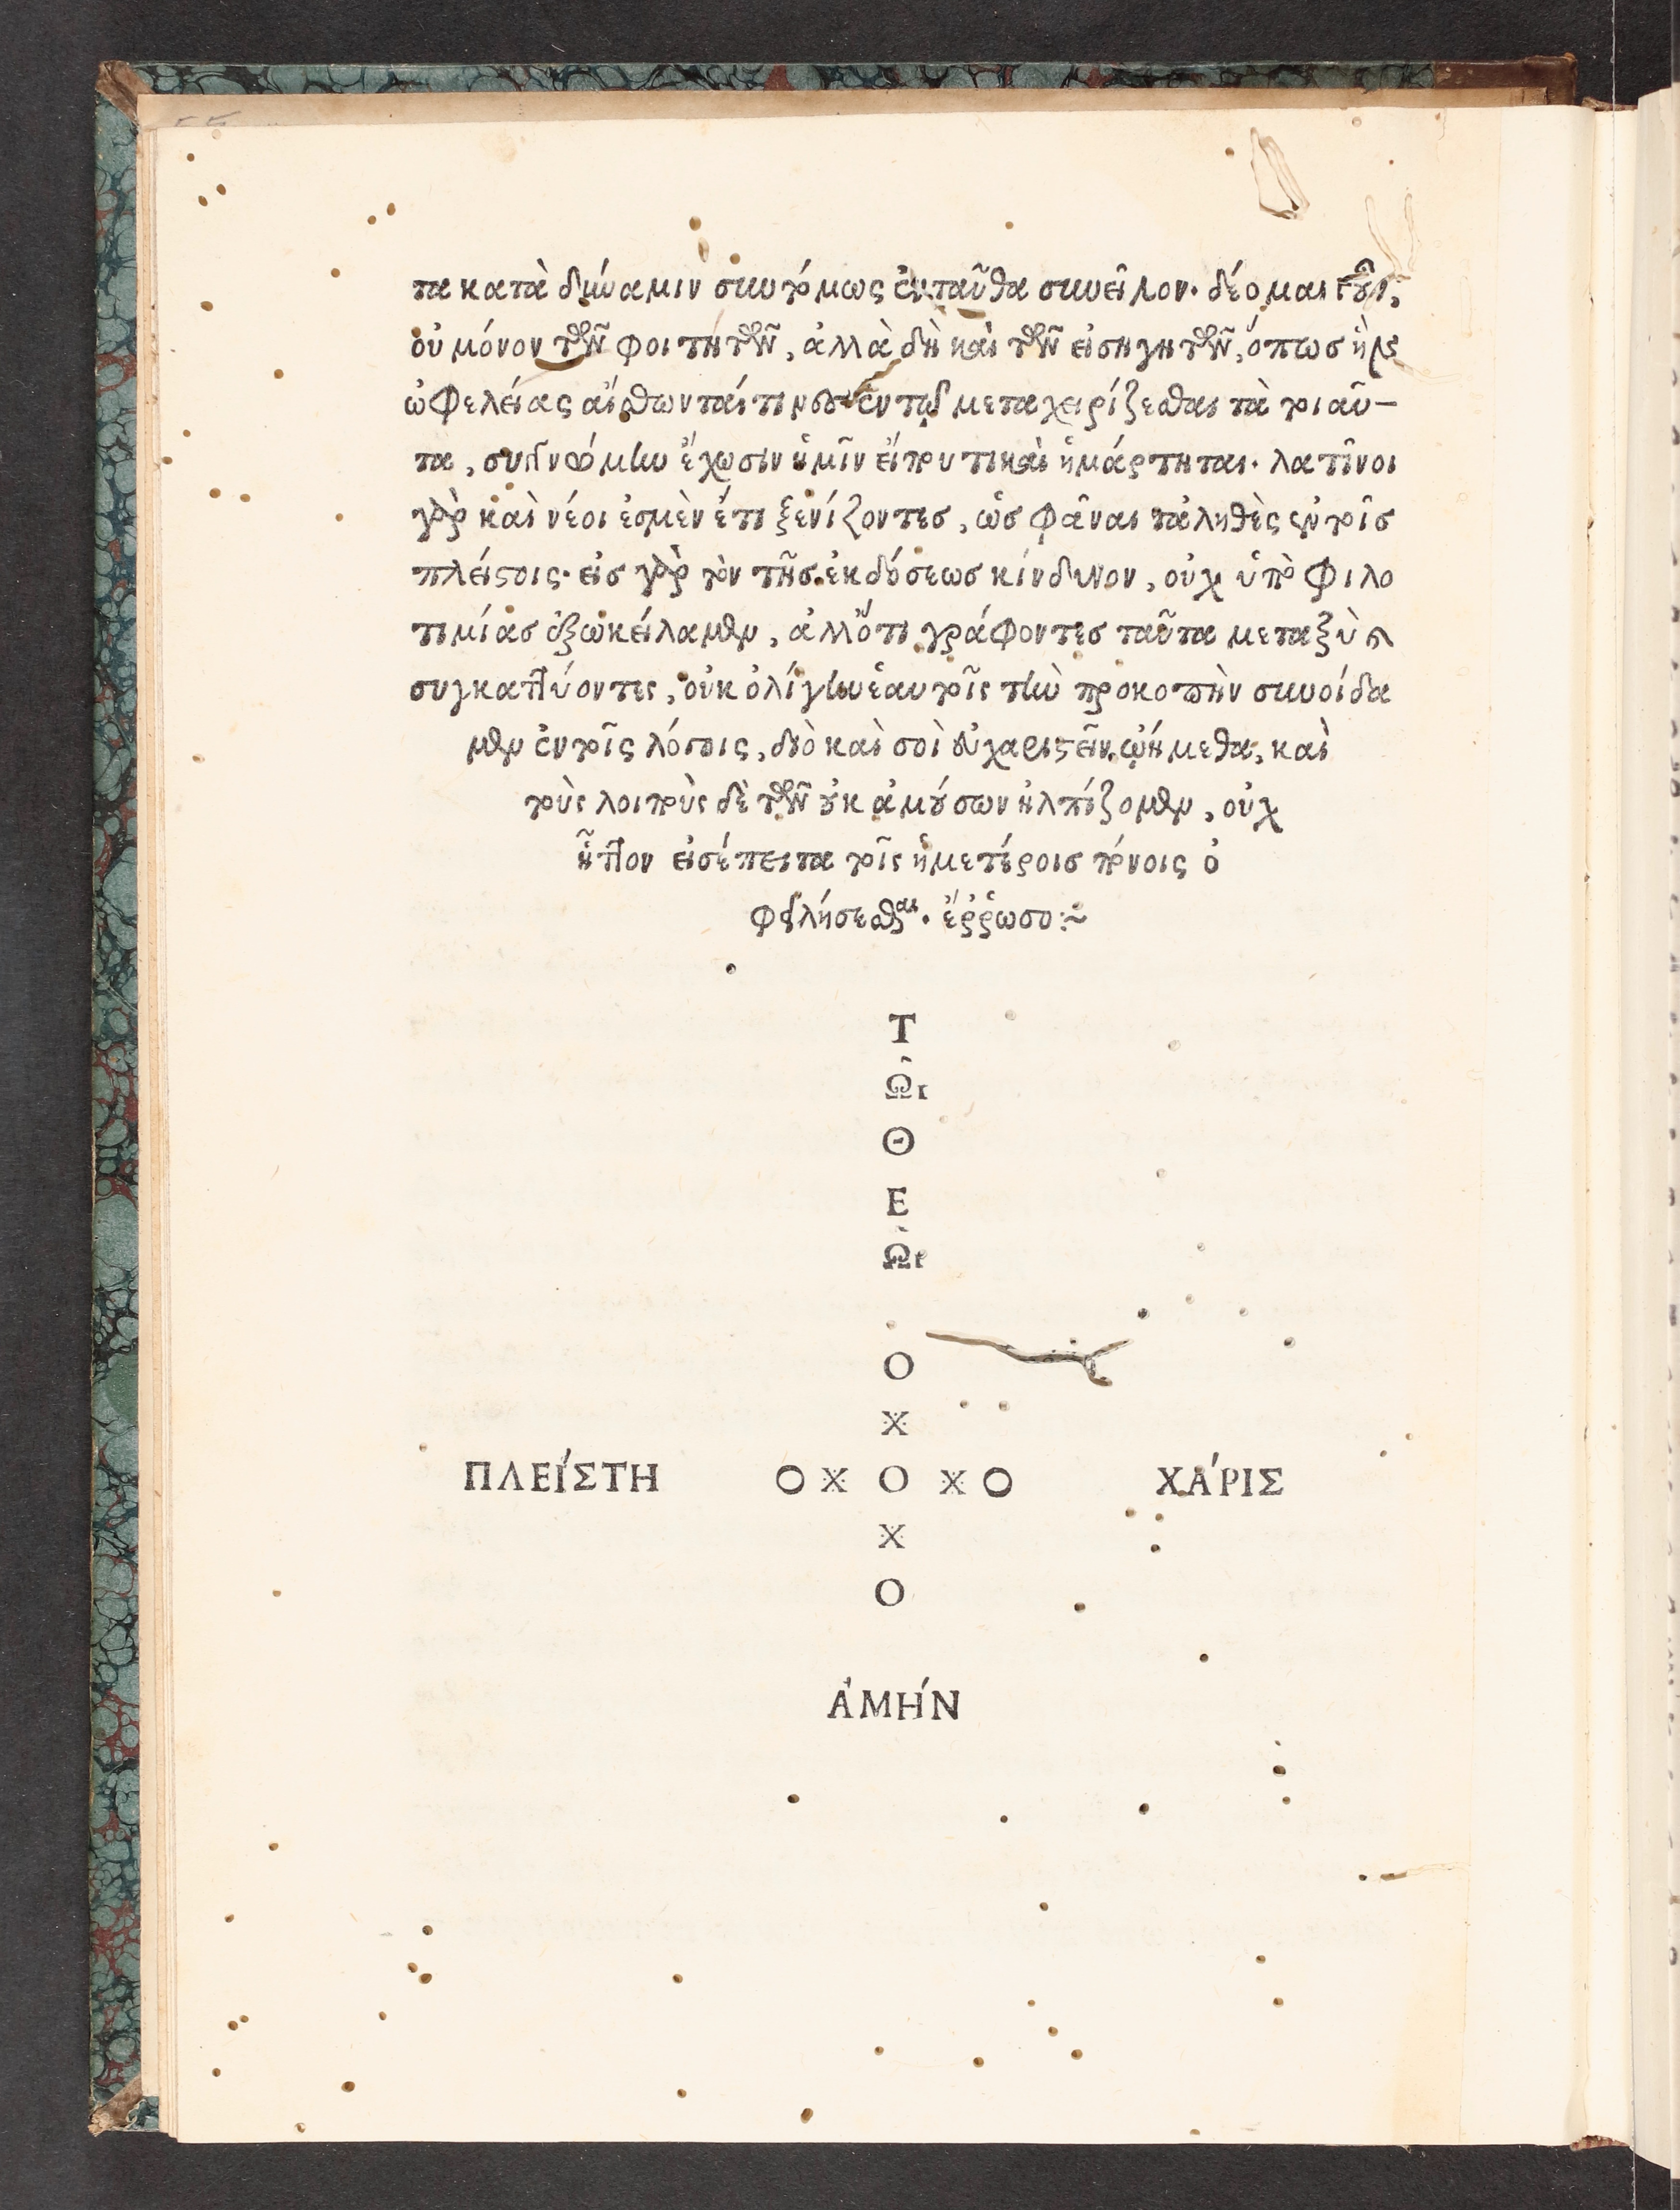 τα κατὰ δύναμιν συντόμως ἐνταῦθα συνεῖλον. δέομαι
οὐ μόνον τῶν φοιτητῶν, ἀλλὰ δὴ καὶ τῶν εἰσηγητῶν, ὅπως ἤν
ὠφελείας αἴσθωνταί τινος ἐν τῷ μεταχειρίζεσθαι τὰ τοιαῦ–
τα, συγγνώμην ἔχωσιν ἡμῖν εἴπου τι καὶ ἡμάρτηται. λατῖνοι
γὰρ καὶ νέοι ἐσμὲν ἔτι ξενίζοντες, ὡς φᾶναι τἀληθὲς ἐν τοῖς
πλείστοις. εἰς γὰρ τὸν τῆς ἐκδόσεως κίνδυνον, οὐχ ὑπὸ φιλο
τιμίας ἐξωκείλαμεν, ἀλλ' ὅτι γράφοντες ταῦτα μεταξὺ
συγκαττύοντες, οὐκ ὀλίγην ἑαυτοῖς τὴν προκοπὴν συνοίδα
μεν ἐν τοῖς λόγοις, διὸ καὶ σοὶ εὐχαριστεῖν ᾠήμεθα, καὶ
τοὺς λοιποὺς δὲ τῶν οὐκ ἀμούσων ἠλπίζομεν, οὐχ
ἧττον εἰσέπειτα τοῖς ἡμετέροις πόνοις ὀ
φειλήσεσθαι. ἔῤῥωσο:~
Τ
Ω͂ι
Θ
Ε
Ω͂ι
Ο
Χ
ΠΛΕΊΣΤΗ Ο Χ Ο Χ Ο ΧΆΡΙΣ
Χ
Ο
ἈΜΉΝ